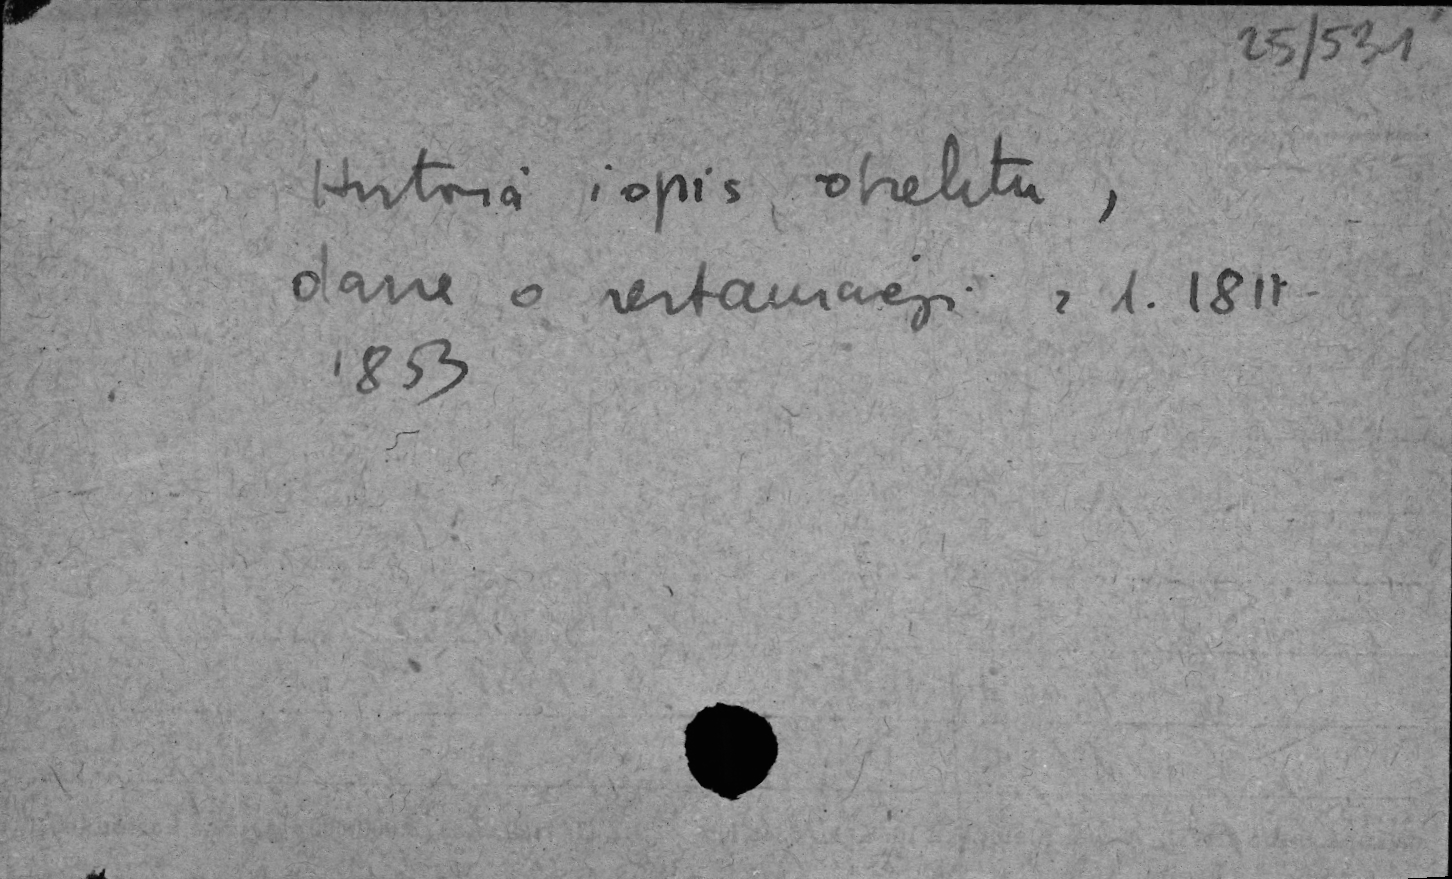 25/531
Historia i opis obiektu,
dane o restauracji z l. 1811-
1853